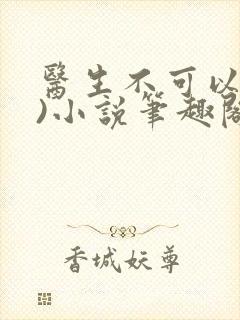 醫生不可以
)小說筆趣閣
香城妖尊